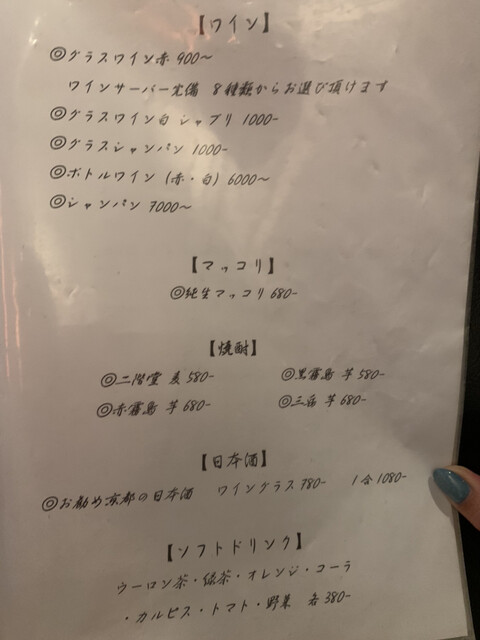 【ワイン】
◎グラスワイン赤 900〜
ワインサーバー完備 8種類からお選び頂けます
◎グラスワイン白 シャブリ 1000-
◎グラスシャンパン 1000-
◎ボトルワイン (赤・白) 6000〜
◎シャンパン 7000〜
【マッコリ】
◎純生マッコリ 680-
【焼酎】
◎二階堂 麦 580- ◎黒霧島 芋 580-
◎赤霧島 芋 680- ◎三岳 芋 680-
【日本酒】
◎お勧め京都の日本酒 ワイングラス 780- 1合 1080-
【ソフトドリンク】
ウーロン茶・緑茶・オレンジ・コーラ
・カルピス・トマト・野菜 各 380-